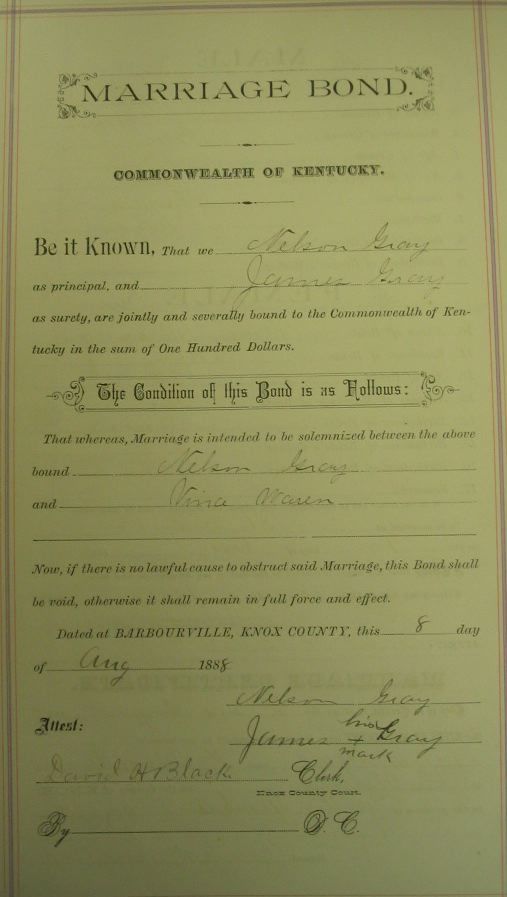 MARRIAGE BOND.
COMMONWEALTH OF KENTUCKY.
Be it Known, That we Nelson Gray
as principal, and James Gray
as surety, are jointly and severally bound to the Commonwealth of Ken-
tucky in the sum of One Hundred Dollars.
The Condition of this Bond is as Follows:
That whereas, Marriage is intended to be solemnized between the above
bound Nelson Gray
and Vina Waren
Now, if there is no lawful cause to obstruct said Marriage, this Bond shall
be void, otherwise it shall remain in full force and effect.
Dated at BARBOURVILLE, KNOX COUNTY, this 8 day
of Aug 1888
Nelson Gray
Attest:
his
James + Gray
mark
David H Black Clerk,
Knox County Court.
By D. C.